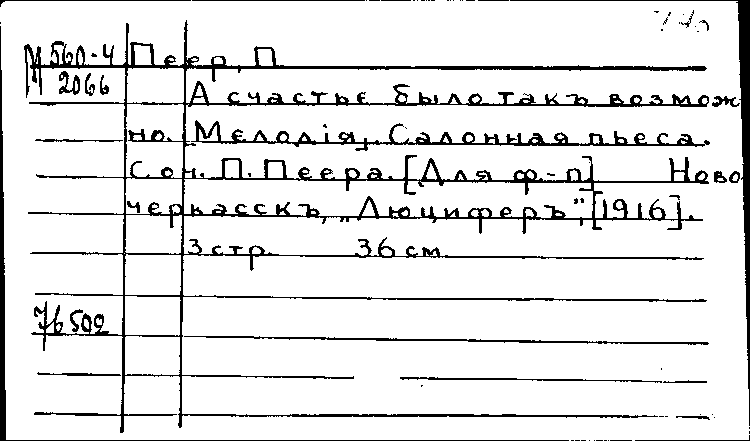 М 560-4 Пеер, П
2066
А счастье было такъ возмож
но. [Мелодія]. Салонная пьеса.
Соч. П. Пеера. [Для ф.-п] Ново
черкасскъ, „Люциферъ", [1916].
3 стр. 36 см
76502